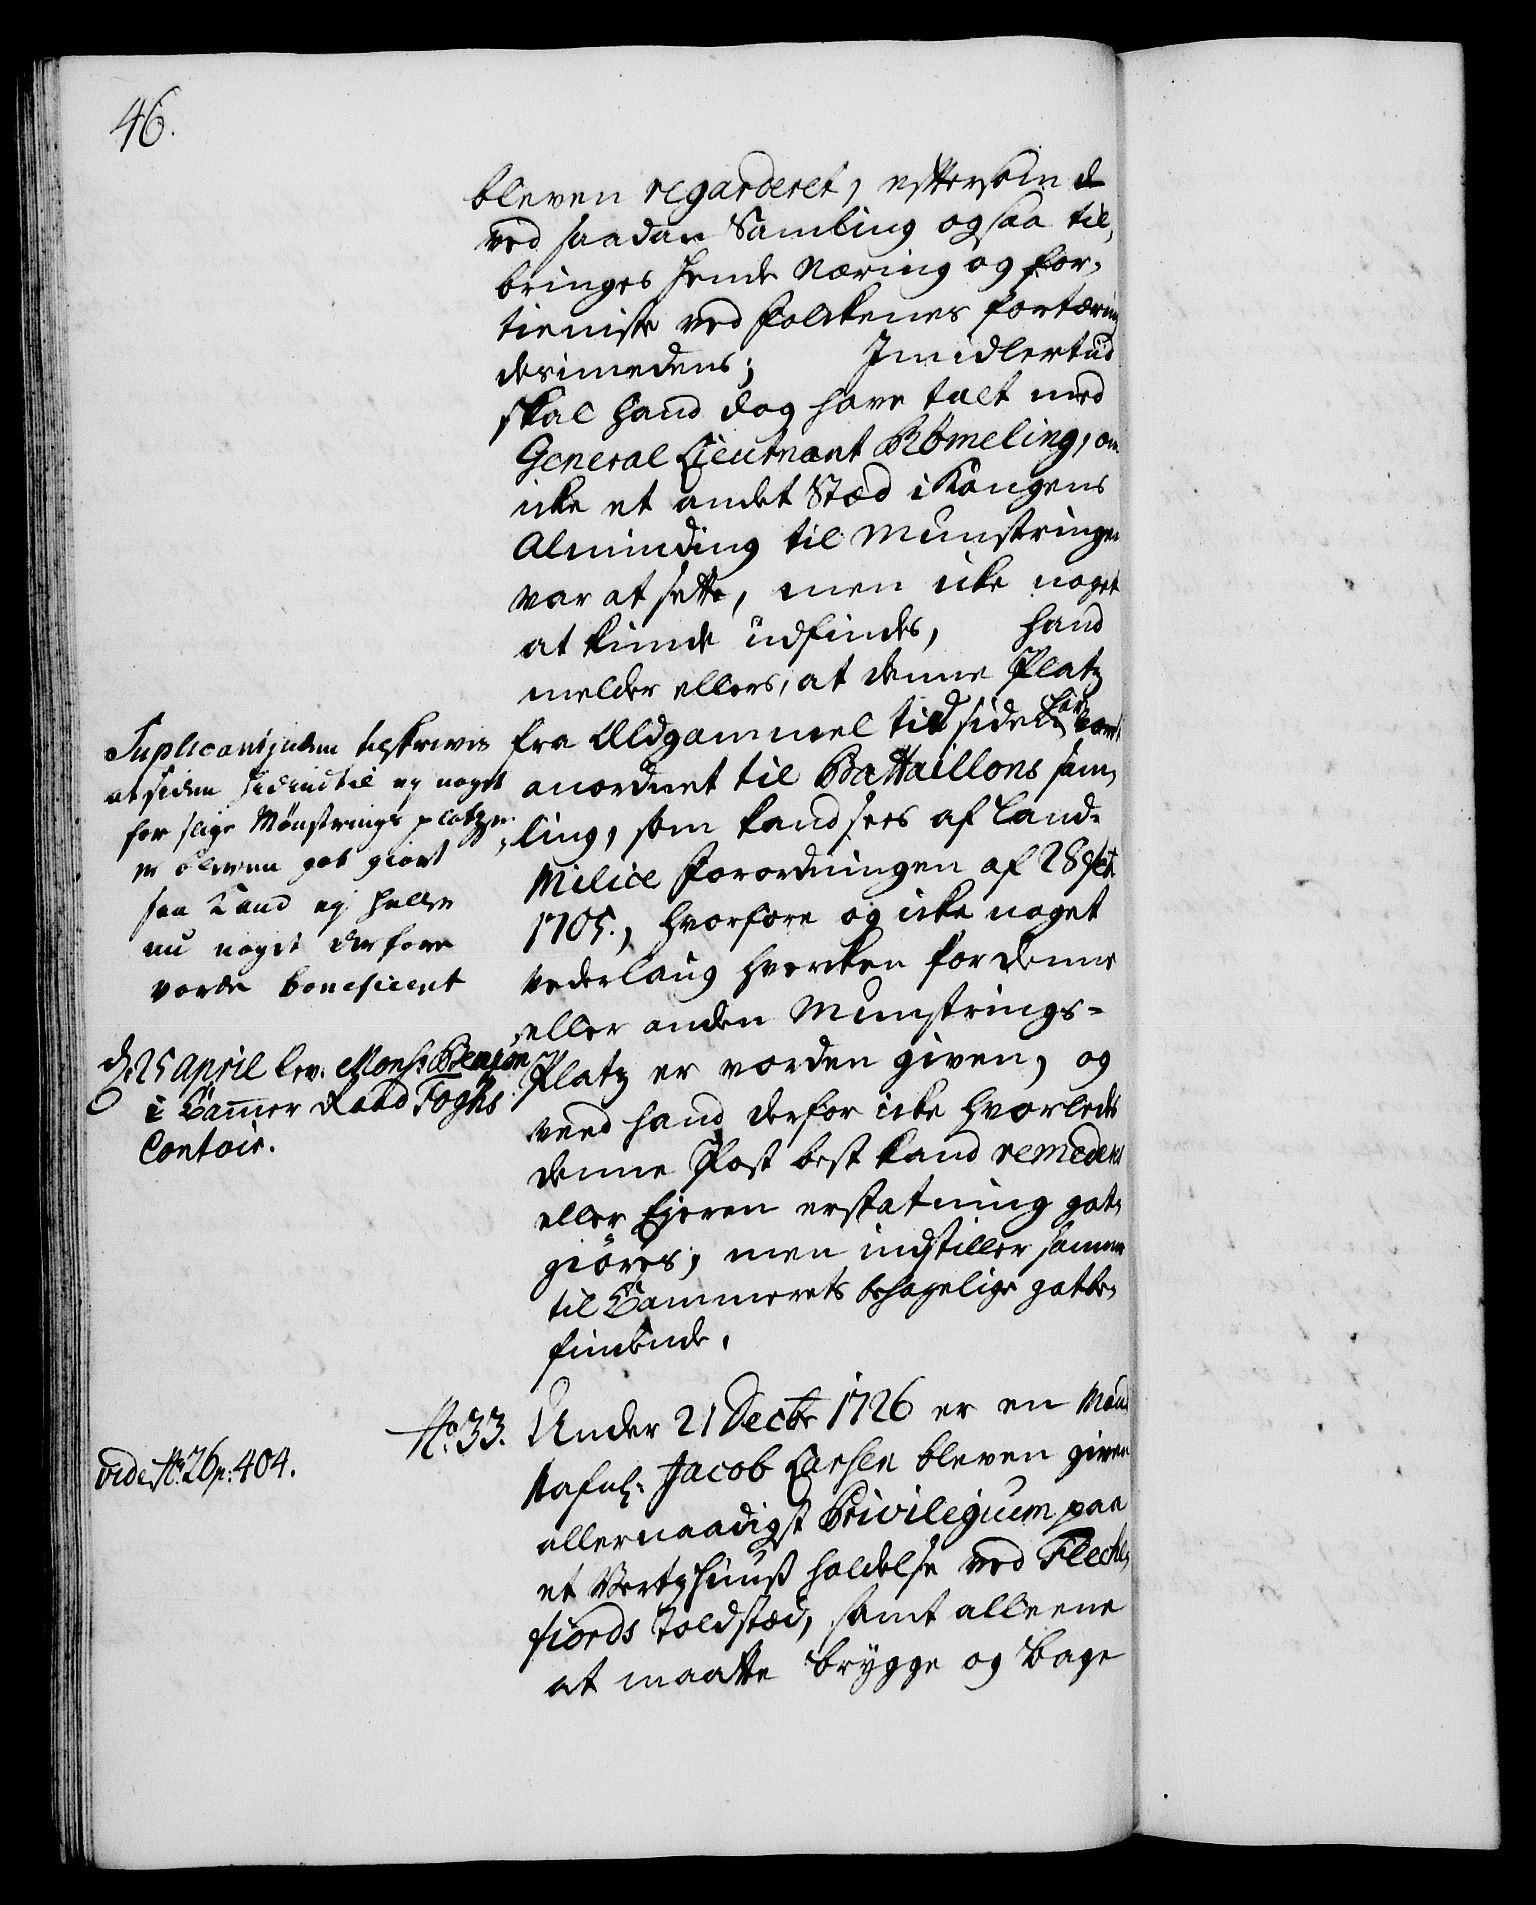 46.
bleven regarderet, eftersom d
ved saadan Samling ogsaa til,
bringes hende Næring og for,
tieniste ved folckenes fortæring
desimedens; Imidlertiid
skal hand dog have talt med
General Lieutnant Rømeling, om
icke et andet Stæd i Kongens
Alminding til Munstringen
var at sette, men icke noget
at kunde udfindes, hand
melder ellers, at denne Platz
fra Oldgammel tid siden har været
anordnet til Battaillons sam,
ling, som kand sees af Land-
Milice Forordningen af 28 feb:
1705., hvorfore og icke noget
vederlaug hvercken for denne
eller anden Munstrings-
Platz er vorden given, og
veed hand derfor icke hvorleds
denne Post best kand remederes
eller Ejeren erstatning got,
giöres, men indstiller samme
til Cammerets behagelige gotbe,
findende.
Suplicantinden tilskrives
at siden hidindtil ey noget
for slige Mönstrings platzer
er bleven got giort
saa kand ej heller
nu noget derfore
vorde beneficent
d. 25 April lev. Monhr.
i Cammer Raad Foghs
Contoir.
No. 33. Under 21 Decbr 1726 er en Mand
Nafnl. Jacob Larsen bleven given
allernaadigst Privilegium paa
et Vertzhuuss holdelse ved Fleche,
fiords Toldstæd, samt alleene
at maatte brygge og bage
vide No. 26 p: 404.